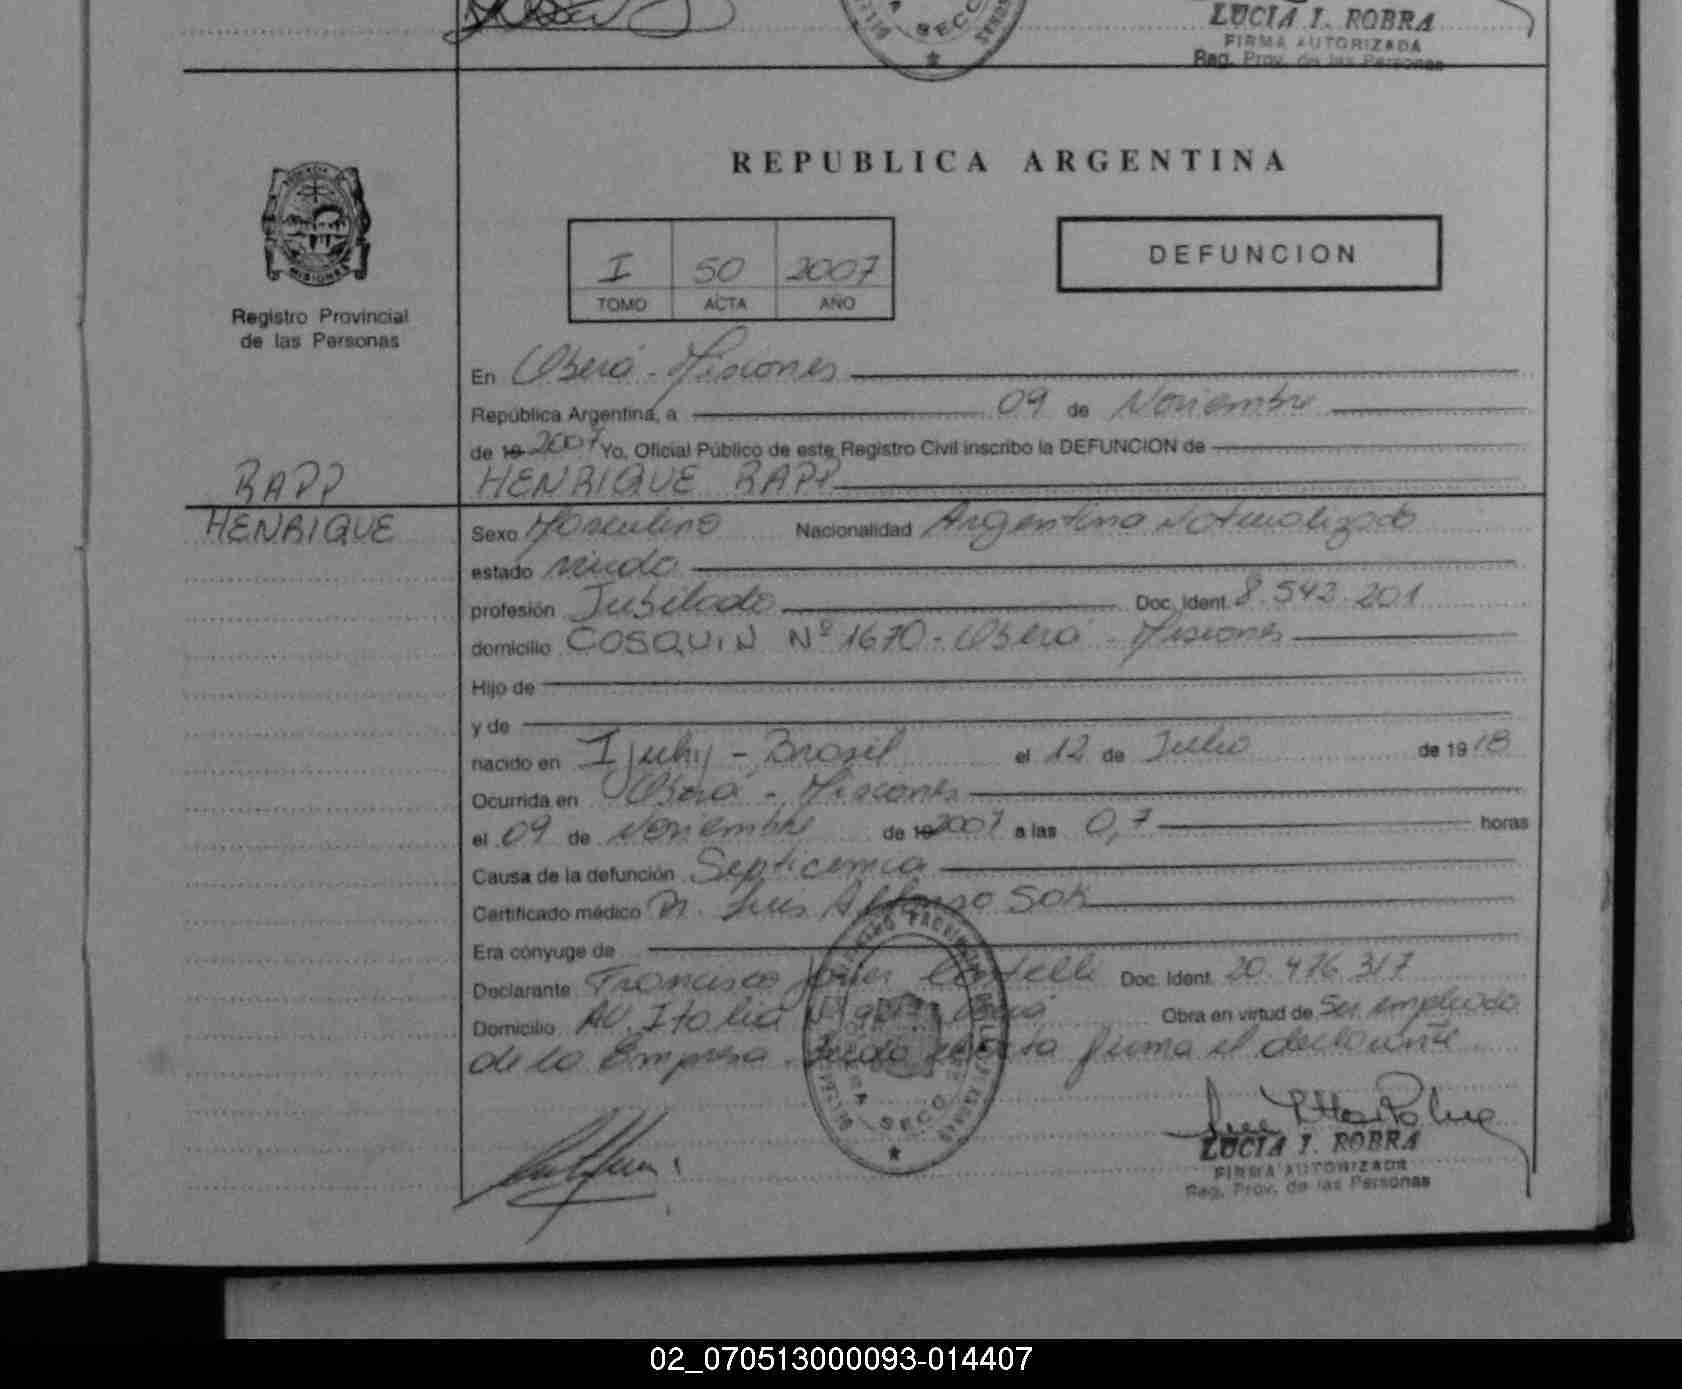 SECC
LUCIA I. ROBRA
FIRMA AUTORIZADA
Reg. Prov. de las Personas
REPUBLICA ARGENTINA
MISIONES
Registro Provincial
de las Personas
I 50 2007
TOMO ACTA AÑO
DEFUNCION
En Oberá - Misiones
República Argentina, a 09 de Noviembre
de 19 2007 Yo, Oficial Público de este Registro Civil inscribo la DEFUNCION de
HENRIQUE RAPP
RAPP
HENRIQUE
Sexo Masculino Nacionalidad Argentina Naturalizado
estado viudo
profesión Jubilado Doc. Ident. 8.542.201
domicilio COSQUIN Nº 1670 - Oberá - Misiones
Hijo de
y de
nacido en Ijuhy - Brasil el 12 de Julio de 1918
Ocurrida en Oberá - Misiones
el 09 de Noviembre de 19 2007 a las 0,7 horas
Causa de la defunción Septicemia
Certificado médico Dr. Luis Alfonso SOK
Era cónyuge de
Declarante Francisco Doc. Ident. 20.476.317
Domicilio AV. Italia Nº Oberá Obra en virtud de Ser empleado
de la Empresa. Leida el acta firma el declarante
SECC
LUCIA I. ROBRA
FIRMA AUTORIZADA
Reg. Prov. de las Personas
02_070513000093-014407